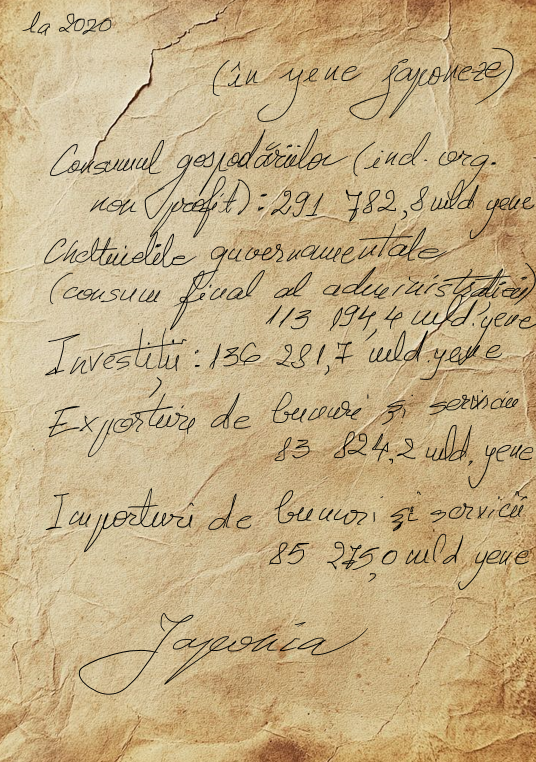 la 2020
(în yene japoneze)
Consumul gospodăriilor (ind. org.
non profit): 291 782,8 mld yene
Cheltuielile guvernamentale
(consum final al administrației)
113 194,4 mld. yene
Investiții: 136 281,7 mld. yene
Exporturi de bunuri și servicii
83 824,2 mld. yene
Importuri de bunuri și servicii
85 275,0 mld yene
Japonia